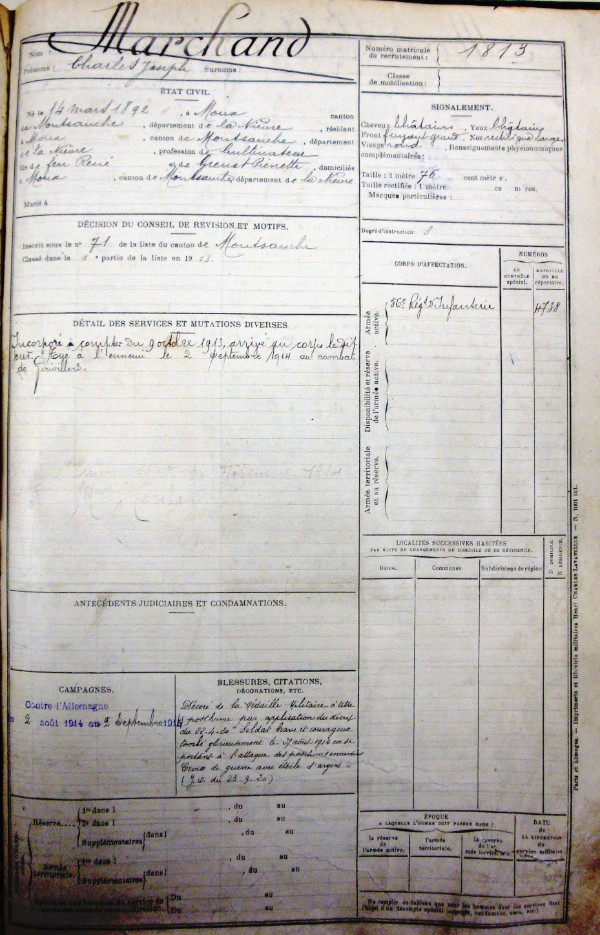 Nom : Marchand
Prénoms : Charles Joseph Surnoms :
ÉTAT CIVIL.
Né le 14 mars 1892, à Moux, canton
de Montsauche, département de la Nièvre, résidant
à Moux, canton de Montsauche, département
de la Nièvre, profession de Cultivateur
fils de feu René et de , domiciliés
à Moux, canton de Montsauche, département de la Nièvre
Marié à
DÉCISION DU CONSEIL DE REVISION ET MOTIFS.
Inscrit sous le n° 71 de la liste du canton de Montsauche
Classé dans la 1e partie de la liste en 1913.
DÉTAIL DES SERVICES ET MUTATIONS DIVERSES
Incorporé à compter du 9 octobre 1913, arrivé au corps le dit
jour. Tué à l'ennemi le 2 Septembre 1914 au combat
de
ANTÉCÉDENTS JUDICIAIRES ET CONDAMNATIONS.
CAMPAGNES.
Contre l'Allemagne
2 août 1914 au 2 Septembre 1914
BLESSURES, CITATIONS,
DÉCORATIONS, ETC.
Décoré de la Médaille Militaire à titre
posthume par application du décret
du Soldat brave et courageux
tombé glorieusement le août 1914 en se
portant à l'attaque des positions ennemies
Croix de guerre avec étoile d'argent
(J.O. du 23-9-20)
Réserve
1re dans l , du au
2e dans l , du au
Supplémentaires dans l , du au
Armée territoriale.
1re dans l , du au
Supplémentaires dans l , du au
Du au
Du au
Numéro matricule
du recrutement : 1813
Classe
de mobilisation :
SIGNALEMENT.
Cheveux châtains, Yeux châtains
Front grand, Nez rectiligne large
Visage rond, Renseignements physionomiques
complémentaires :
Taille : 1 mètre 76 centimètres.
Taille rectifiée : 1 mètre cm res.
Marques particulières :
Degré d'instruction : 3
CORPS D'AFFECTATION.
NUMÉROS
au contrôle spécial.
matricule ou au répertoire.
Armée active.
56e Régt d'Infanterie 4738
Disponibilité et réserve de l'armée active.
Armée territoriale et sa réserve.
LOCALITÉS SUCCESSIVES HABITÉES
PAR SUITE DE CHANGEMENTS DE DOMICILE OU DE RÉSIDENCE.
Dates. Communes Subdivisions de région
D. DOMICILE.
R. RÉSIDENCE.
ÉPOQUE
A LAQUELLE L'HOMME DOIT PASSER DANS :
la réserve de l'armée active.
l'armée territoriale.
la réserve de l'armée territoriale.
DATE
de
LA LIBÉRATION
du
service militaire
Paris et Limoges. — Imprimerie et librairie militaires Henri CHARLES-LAVAUZELLE